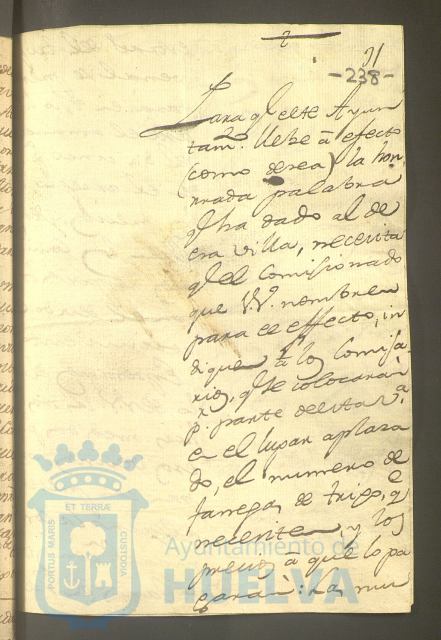 2
91
-238-
Para q.e este Ayun
tam.to llebe â efecto
(como desea) la hon
rrada palabra
q.e ha dado al de
esa villa, necesita
q.e el Comisionado
que V.V. nombren
para el efecto, in
dique â los Comisa-
rios, q.e se colocaran
p.r parte de esta v.a
en el lugar aplaza
do, el numero de
fanegas de trigo, q.e
necesite, y los
precios â que lo pa
garàn: La mu
PORTUS MARIS ET TERRÆ CUSTODIA
Ayuntamiento de
HUELVA